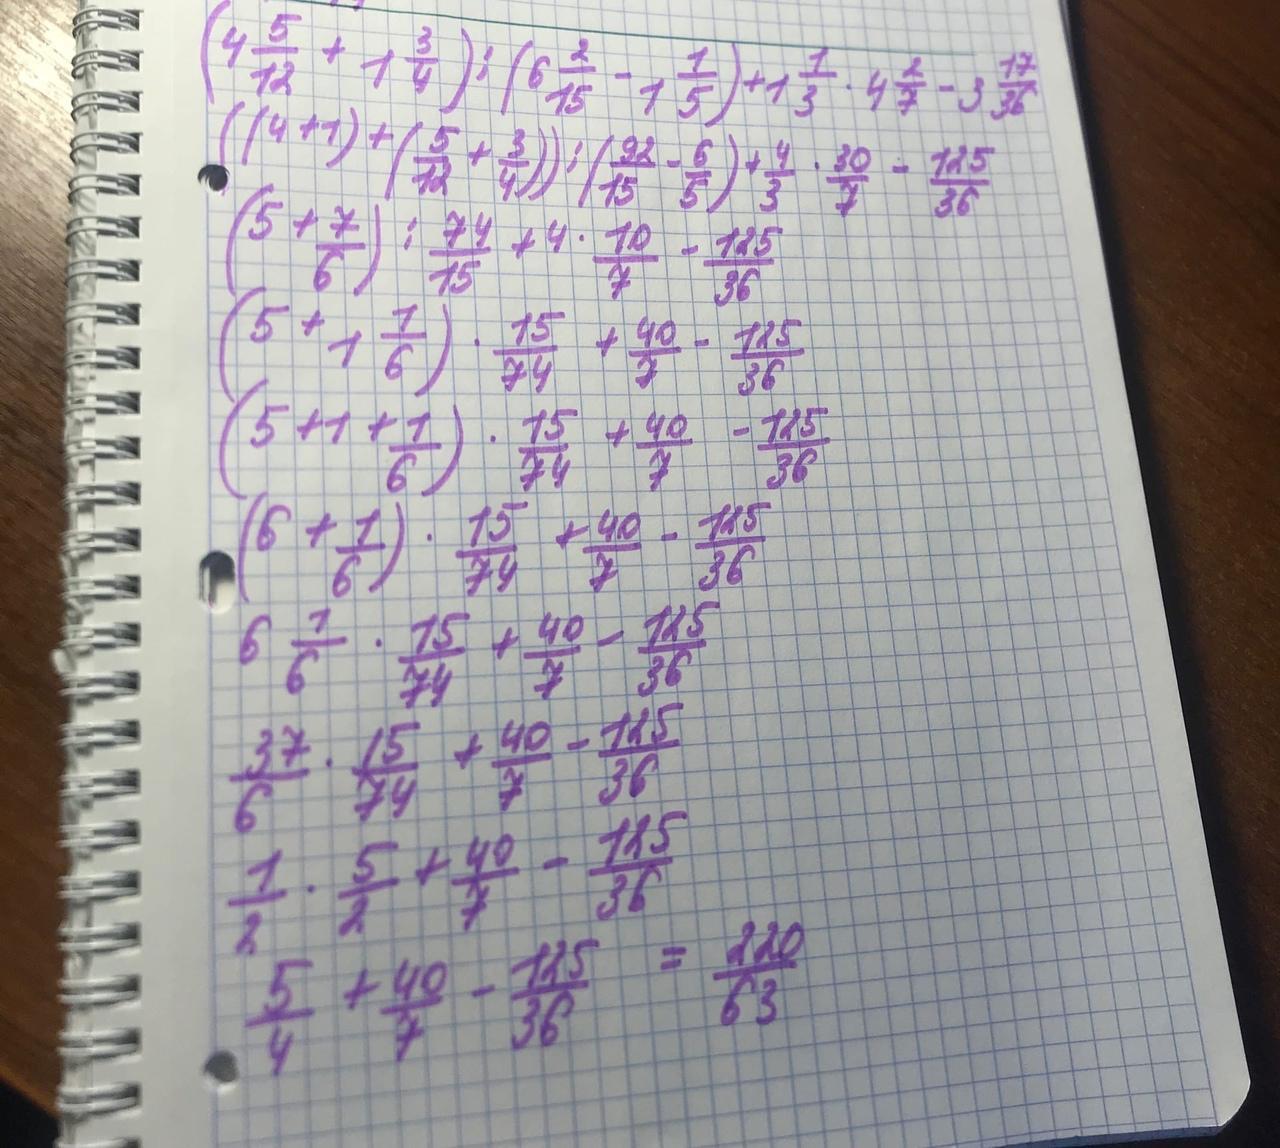 (4 5/12 + 1 3/4) : (6 2/15 - 1 1/5) + 1 1/3 · 4 2/7 - 3 17/36
((4+1) + (5/12 + 3/4)) : (92/15 - 6/5) + 4/3 · 30/7 - 125/36
(5 + 7/6) : 74/15 + 4 · 10/7 - 125/36
(5 + 1 1/6) · 15/74 + 40/7 - 125/36
(5 + 1 + 1/6) · 15/74 + 40/7 - 125/36
(6 + 1/6) · 15/74 + 40/7 - 125/36
6 1/6 · 15/74 + 40/7 - 125/36
37/6 · 15/74 + 40/7 - 125/36
1/2 · 5/2 + 40/7 - 125/36
5/4 + 40/7 - 125/36 = 220/63